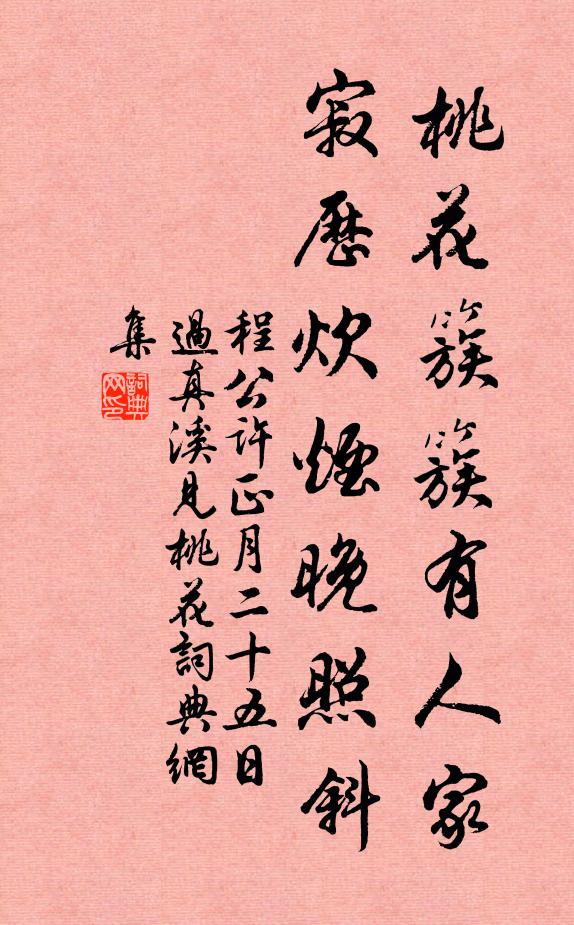 桃花簇簇有人家
寂歷炊煙晚照斜
程公許正月二十五日
過真溪見桃花詞典網
集
詞典
网印